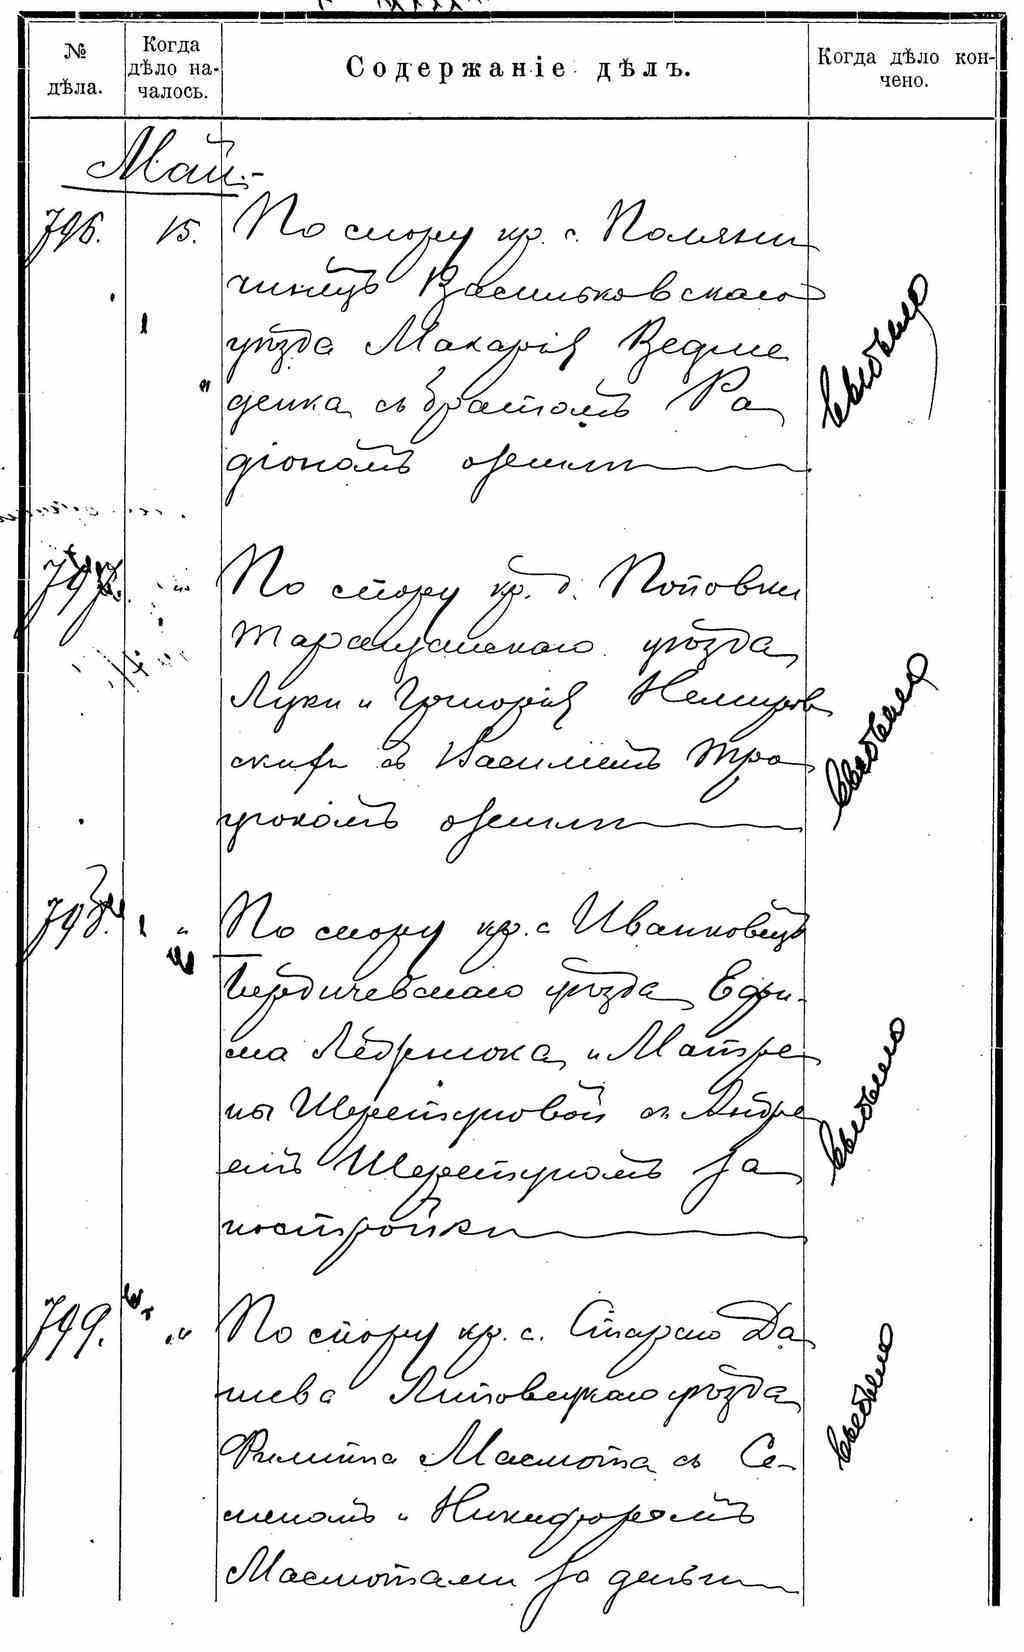 № дѣла.
Когда дѣло на-
чалось.
Содержаніе дѣлъ.
Когда дѣло кон-
чено.
Май.
796. 15. По спору кр. с. Поляни
чинецъ Васильковскаго
уѣзда Макарія Ведме
денка съ братомъ Ра
діономъ о земли
выбыло
797. " По спору кр. д. Поповки
Таращанскаго уѣзда
Луки и Григорія Немиров
скихъ съ Василіемъ
о земли
выбыло
798. " По спору кр. с. Иванковецъ
Бердичевскаго уѣзда Ефи-
ма и Матре
ны Шереметовой съ Андре
емъ за
постройки
выбыло
799. " По спору кр. с. Стараго Да
шева Липовецкаго уѣзда
Филиппа Маслюта съ Се-
меномъ и Никифоромъ
Маслютами за деньги
выбыло